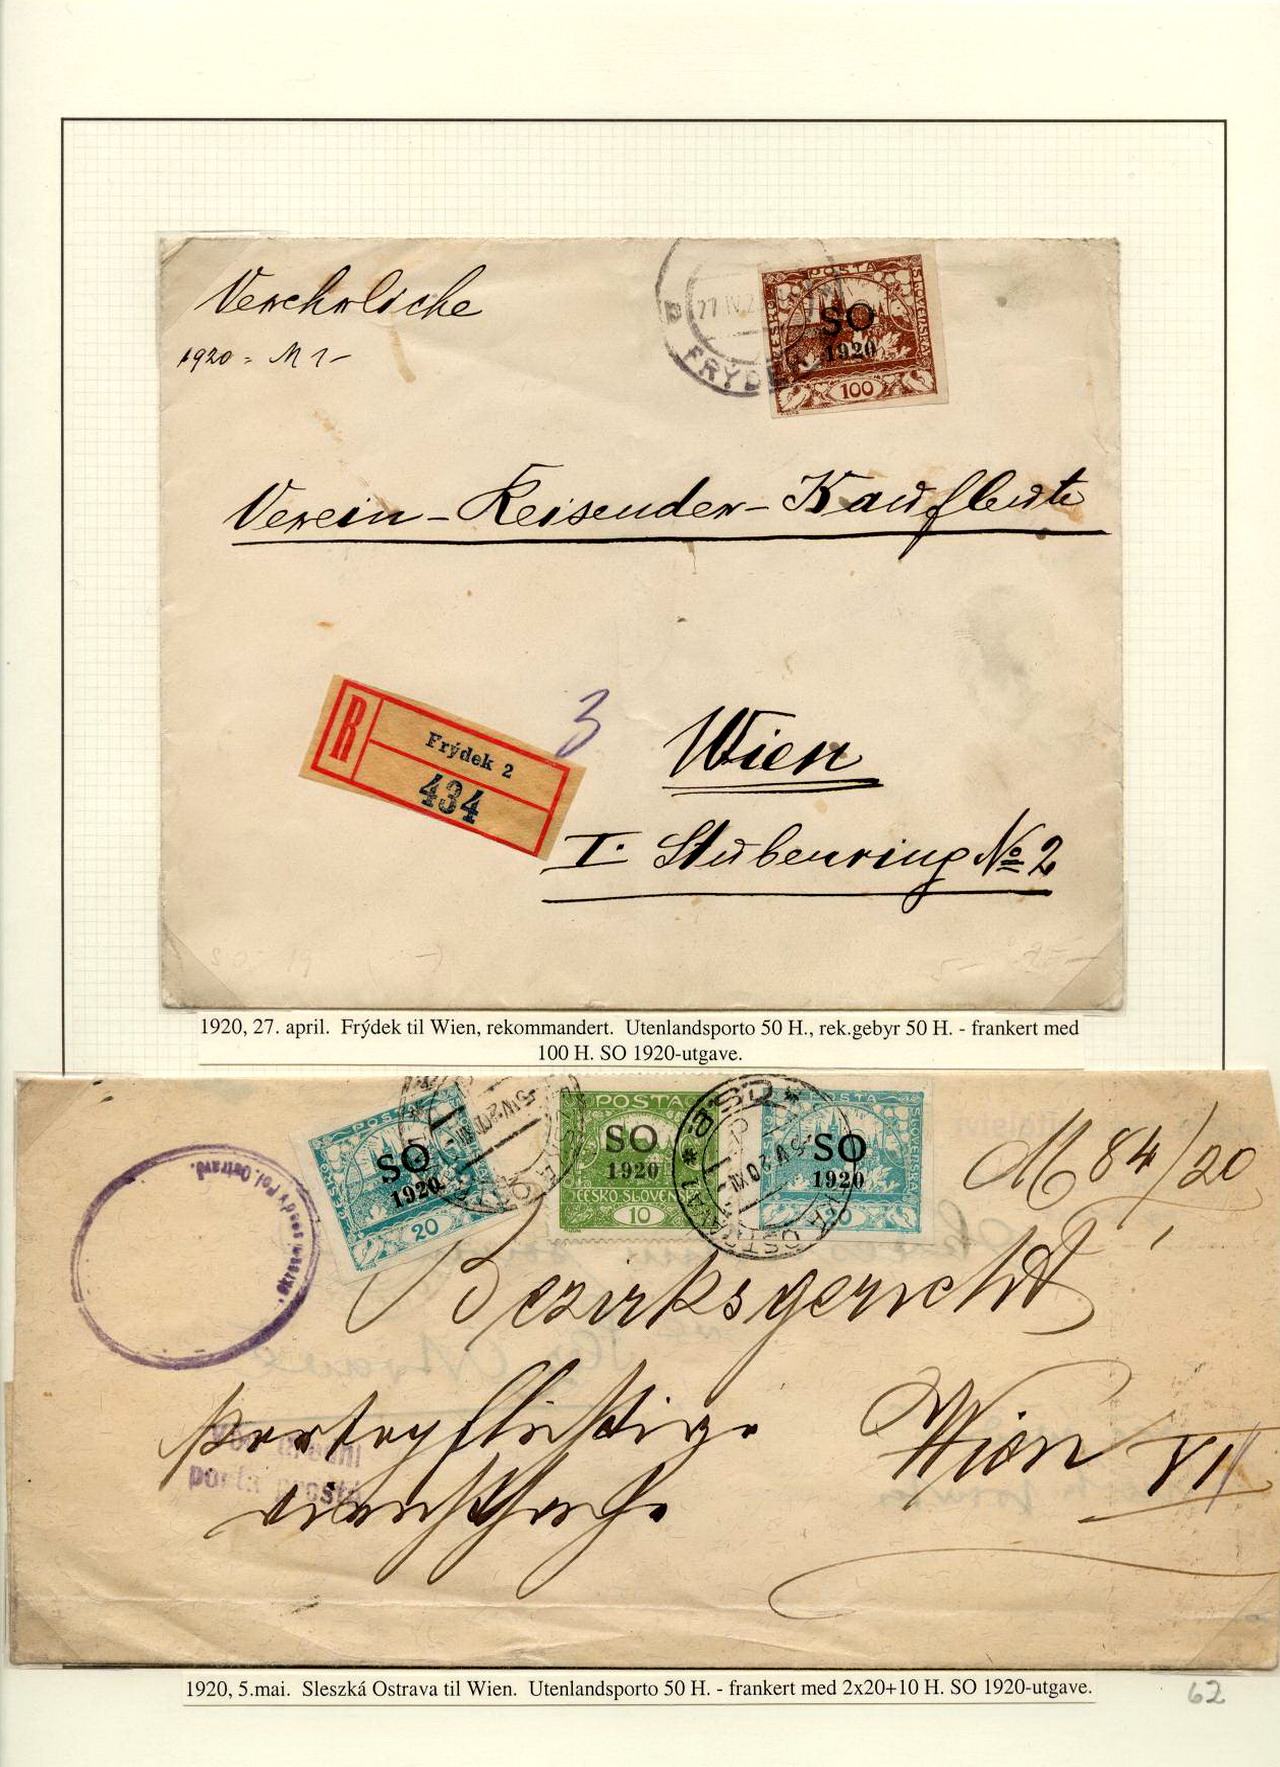 Verehrliche
1920 = M 1-
27 IV 2
FRÝDEK
POSTA
ČESKO SLOVENSKÁ
SO
1920
100
Verein - Reisender - Kaufleute
R
Frýdek 2
434
3
Wien
I. Stubenring No 2
1920, 27. april. Frýdek til Wien, rekommandert. Utenlandsporto 50 H., rek.gebyr 50 H. - frankert med
100 H. SO 1920-utgave.
POSTA
SO
1920
20
POSTA
SO
1920
ČESKO-SLOVENSKÁ
10
POSTA
SO
1920
20
-5.V.20.XII
M 84/20
Pol. Ostrava.
Bezirksgericht
portopflichtige
Wien VI
porta prosté
1920, 5.mai. Sleszká Ostrava til Wien. Utenlandsporto 50 H. - frankert med 2x20+10 H. SO 1920-utgave.
62